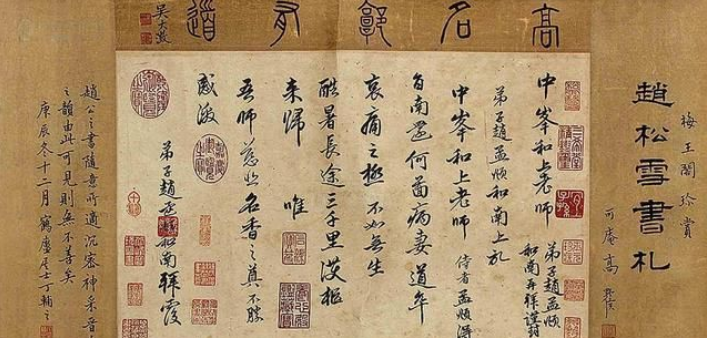 高名郭有道
吳大澂
梅王閣珍賞
趙松雪書札
可庵高野侯
中峯和上老師
弟子趙孟頫
和南再拜謹封
弟子趙孟頫和南上
中峯和上老師
侍者孟頫
自南還何圖病妻道卒
哀痛之極不如無生
酷暑長途三千里護柩
来歸唯
吾師慈悲名香之奠不勝
感激
弟子趙孟頫和南拜覆
趙公之書隨意所適沉密神采晋
之韻由此可見則無不善矣
庚辰冬十二月鶴廬居士丁輔之